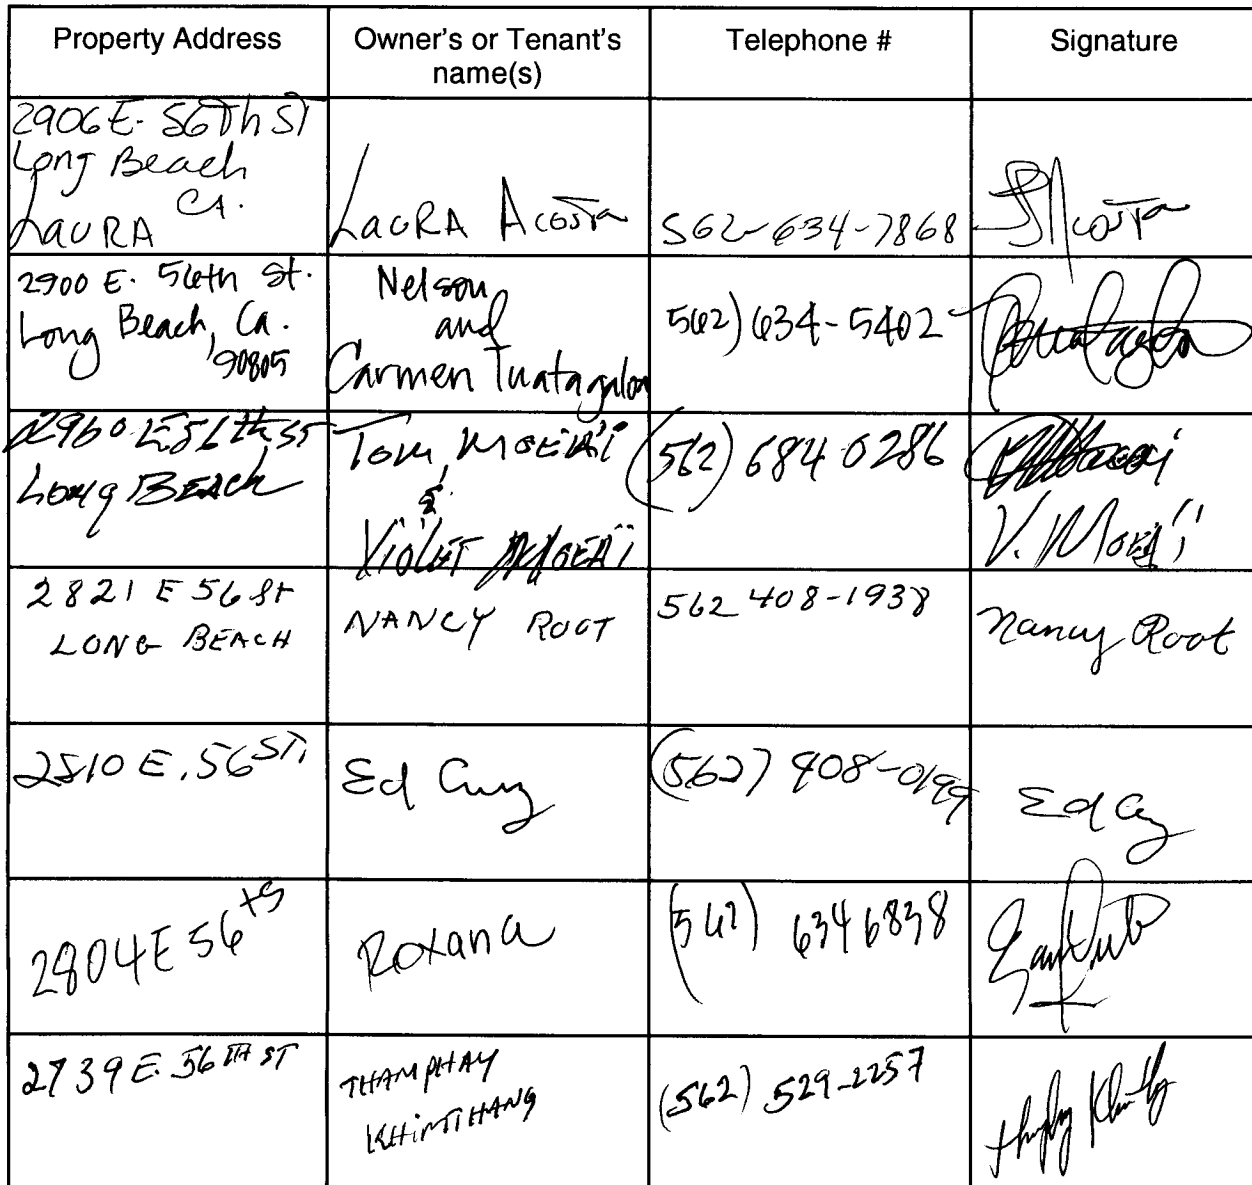 Property Address
Owner's or Tenant's
name(s)
Telephone #
Signature
2906 E. 56th ST
Long Beach
CA.
LAURA
LAURA ACOSTA
562-634-7868
Acosta
2900 E. 56th St.
Long Beach, Ca.
90805
Nelson
and
Carmen Tuatagaloa
562) 634-5402
2960 E 56th ST
Long BEACH
Tom MOEAI
&
VIOLET MOEAI
(562) 684 0286
V. MOEAI
2821 E 56 St
LONG BEACH
NANCY ROOT
562 408-1938
Nancy Root
2810 E. 56 ST.
Ed Cruz
(562) 408-0199
Ed
2804 E 56
Roxana
(562) 634 6838
2739 E. 56TH ST
THAMPHAY
KHIMTHANG
(562) 529-2257